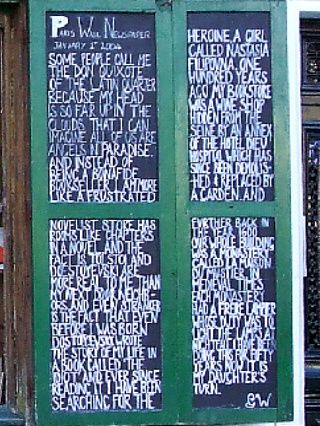 PARIS WALL NEWSPAPER
JANUARY 1st 2004
SOME PEOPLE CALL ME
THE DON QUIXOTE
OF THE LATIN QUARTER
BECAUSE MY HEAD
IS SO FAR UP IN THE
CLOUDS THAT I CAN
IMAGINE ALL OF US ARE
ANGELS IN PARADISE.
AND INSTEAD OF
BEING A BONAFIDE
BOOKSELLER I AM MORE
LIKE A FRUSTRATED
NOVELIST STORE HAS
ROOMS LIKE CHAPTERS
IN A NOVEL AND THE
FACT IS TOLSTOI AND
DOESTOYEVSKI ARE
MORE REAL TO ME THAN
MY NEXT DOOR NEIGHB
ORS AND EVEN STRANGER
IS THE FACT THAT EVEN
BEFORE I WAS BORN
DOSTOYEVSKI WROTE
THE STORY OF MY LIFE IN
A BOOK CALLED THE
IDIOT AND EVER SINCE
READING IT I HAVE BEEN
SEARCHING FOR THE
HEROINE A GIRL
CALLED NASTASIA
FILIPOVNA. ONE
HUNDRED YEARS
AGO MY BOOKSTORE
WAS A WINE SHOP
HIDDEN FROM THE
SEINE BY AN ANNEX
OF THE HOTEL DIEU
HOSPITAL WHICH HAS
SINCE BEEN DEMOLIS
HED & REPLACED BY
A GARDEN. AND
FURTHER BACK IN
THE YEAR 1600
OUR WHOLE BUILDING
WAS A MONASTERY
CALLED LA MAISON
DU MUSTIER. IN
MEDIEVAL TIMES
EACH MONASTERY
HAD A FRERE LAMPIER
WHOSE DUTY WAS TO
LIGHT THE LAMPS
AT
I HAVE BEEN
DOING THIS FOR FIFTY
YEARS NOW IT IS
MY DAUGHTER'S
TURN.
GW